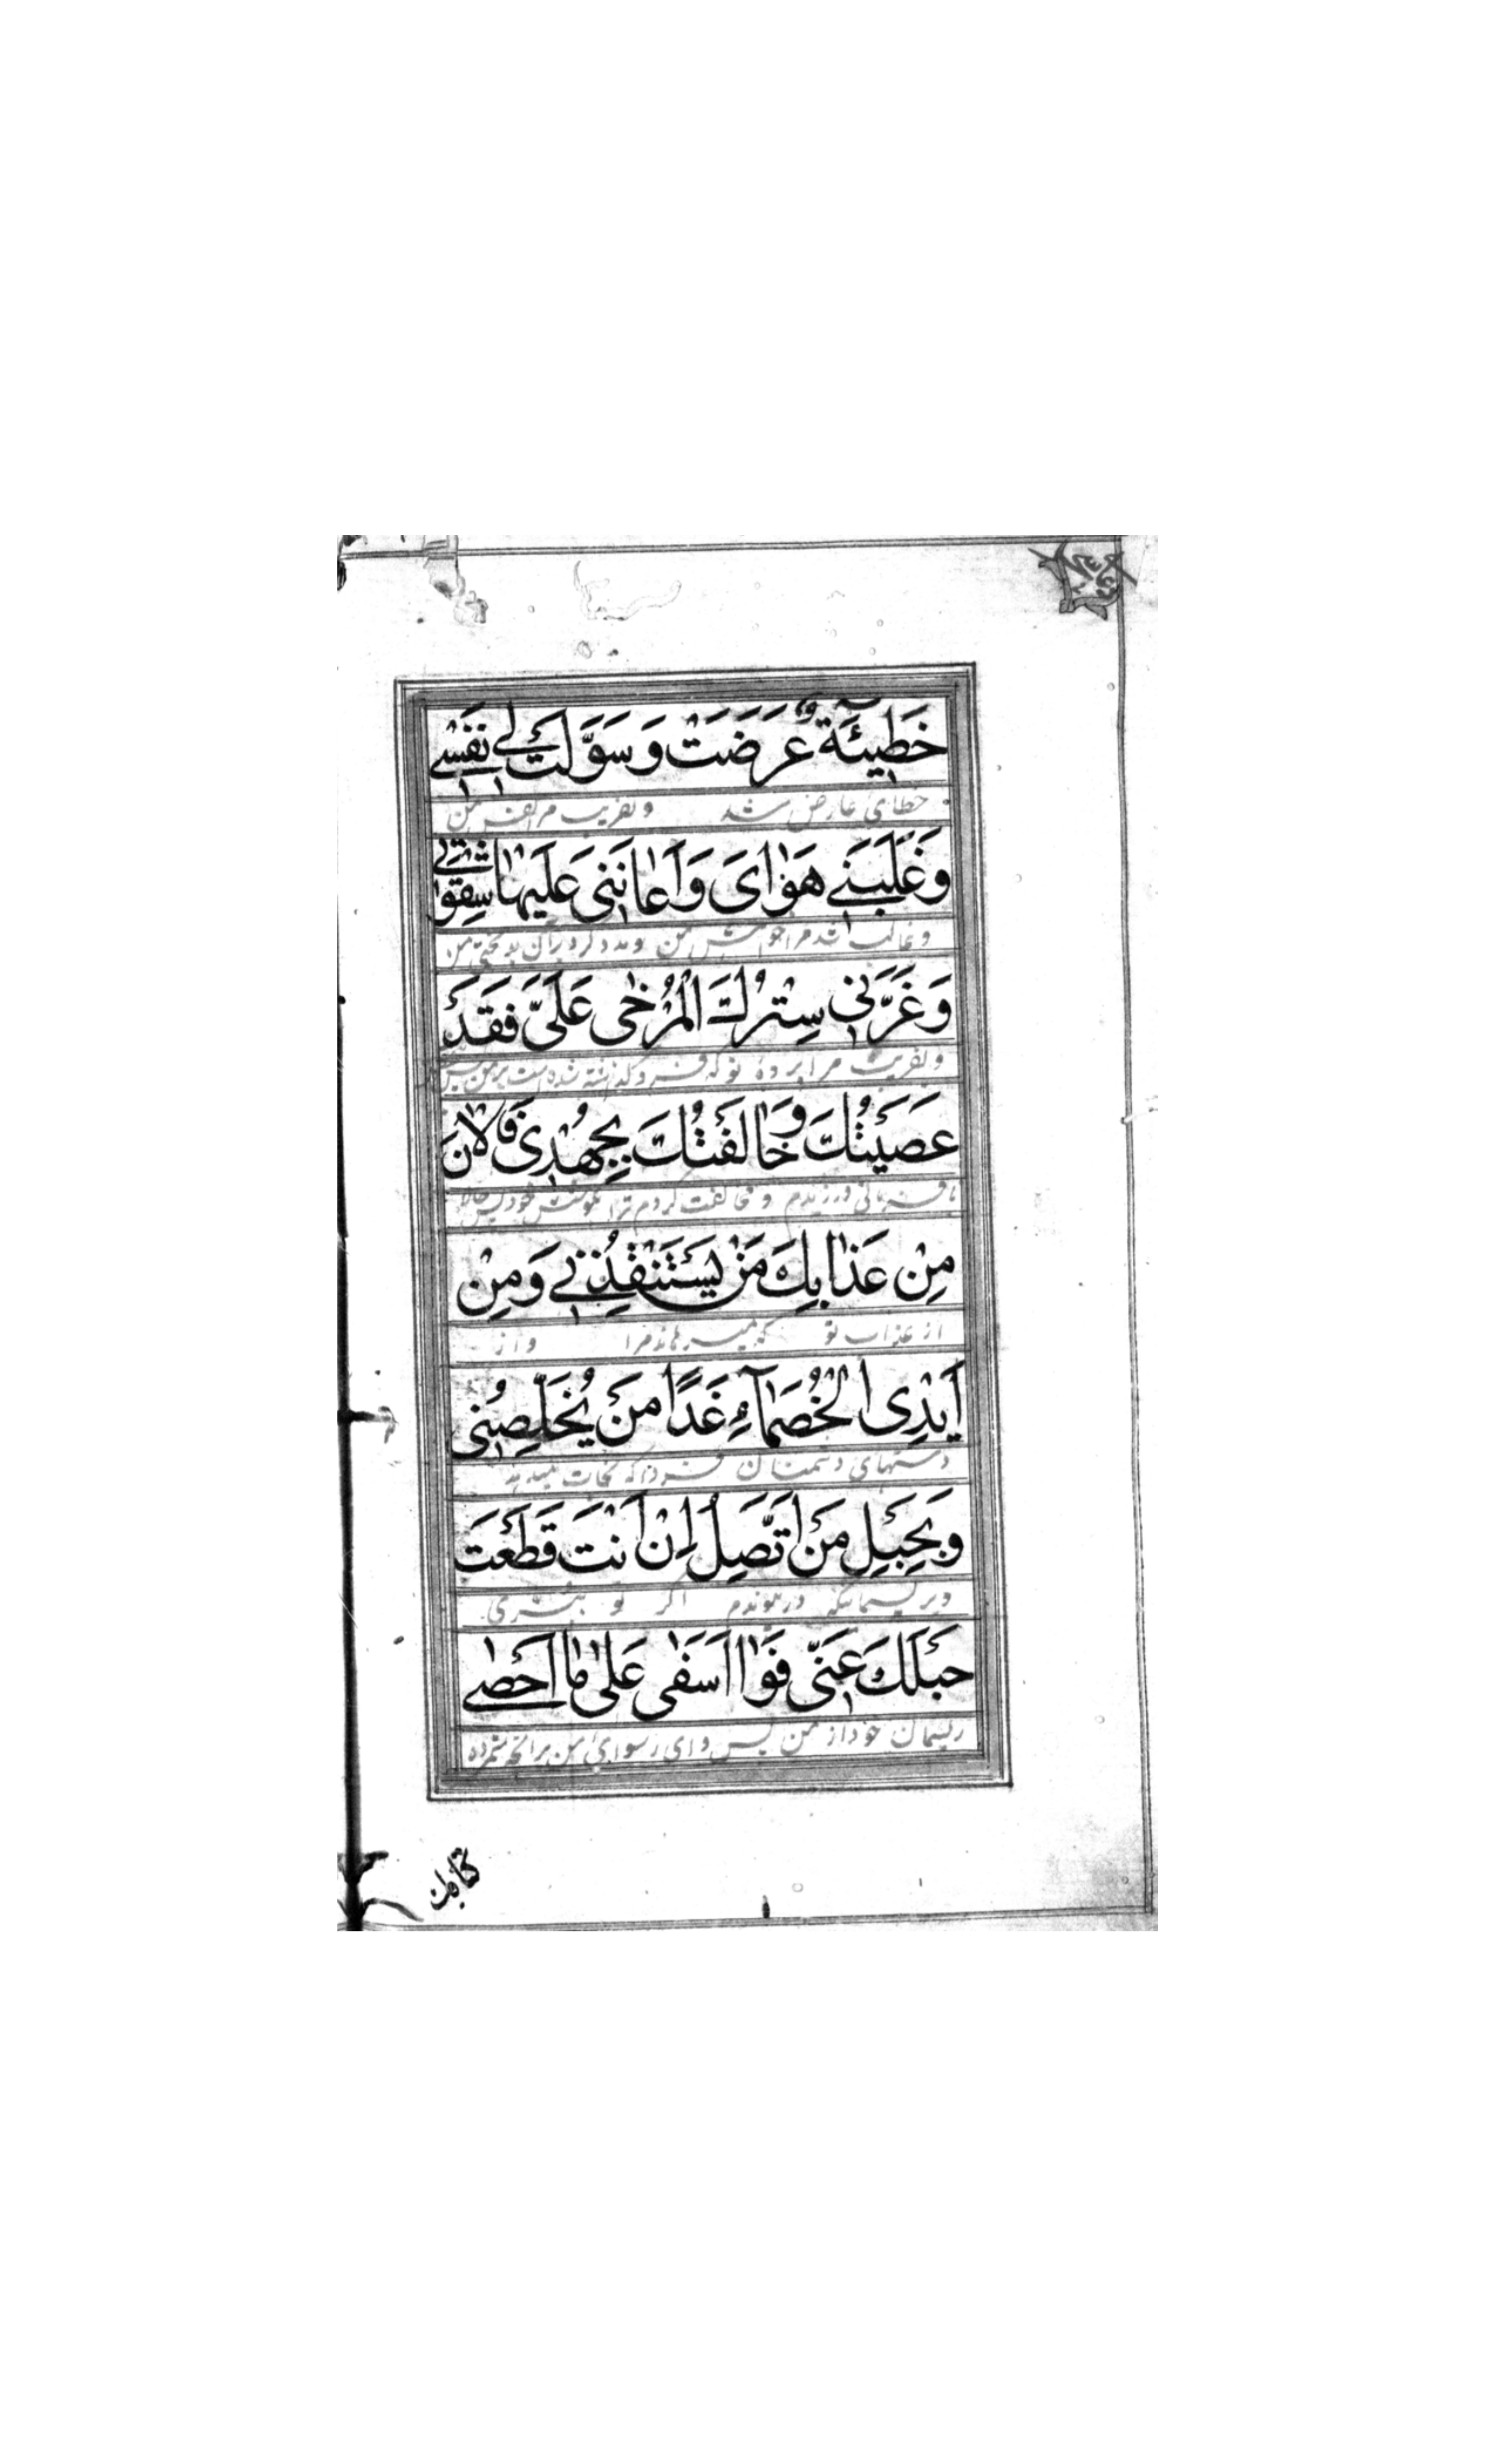 خَطِيئَةٌ عَرَضَتْ وَسَوَّلَتْ لِي نَفْسِي
خطای عارض شد و بفریب مرا نفس من
وَغَلَبَنِي هَوَايَ وَأَعَانَنِي عَلَيْهَا شِقْوَتِي
و غالب شد مرا خواهش من و مدد کرد بر آن بدبختی من
وَغَرَّنِي سِتْرُكَ الْمُرْخَى عَلَيَّ فَقَدْ
و بفریفت مرا پرده تو که فرو گذاشته شده است بر من پس
عَصَيْتُكَ وَخَالَفْتُكَ بِجُهْدِي فَالْآنَ
نافرمانی ورزیدم و مخالفت کردم ترا بکوشش خود پس حالا
مِنْ عَذَابِكَ مَنْ يَسْتَنْقِذُنِي وَمِنْ
از عذاب تو که میرهاند مرا و از
أَيْدِي الْخُصَمَاءِ غَدًا مَنْ يُخَلِّصُنِي
دستهای دشمنان فردا که نجات میدهد
وَبِحَبْلِ مَنْ أَتَّصِلُ إِنْ أَنْتَ قَطَعْتَ
و بریسمان که در پیوندم اگر تو ببری
حَبْلَكَ عَنِّي فَوَا أَسَفَى عَلَى مَا أَحْصَى
ریسمان خود از من پس وای رسوای من بر آنچه شمرده
كتابك